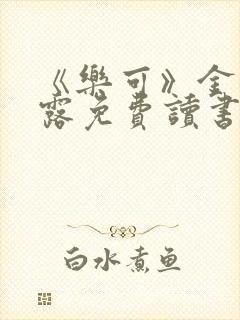 《樂可》金
露免費讀書
白水煮鱼